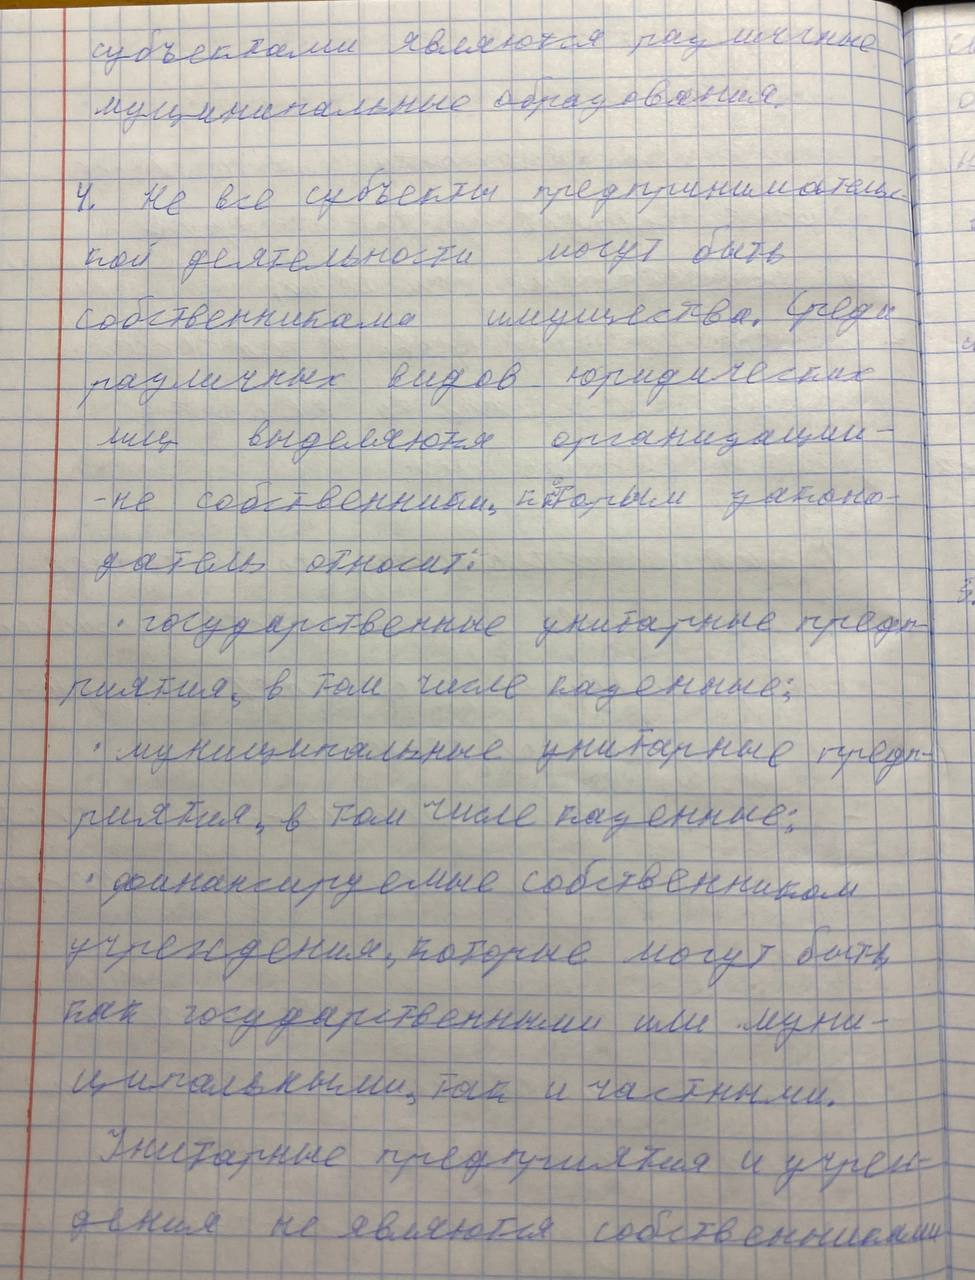 субъектами являются различные
муциципальные образования.
4. Не все субъекты предпринимательс-
кой деятельности могут быть
собственникама имущества. Среди
различных видов юридических
лиц выделяются организации-
-не собственники, которым законо-
датель относит:
· государственные унитарные предп-
риятия, в том числе казенные;
· муниципальные унитарные предп-
риятия, в том числе казенные;
· финансируемые собственником
учреждения, которые могут быть
как государственными или муни-
ципальными, так и частными.
Унитарные предприятия и учреж-
дения не являются собственниками